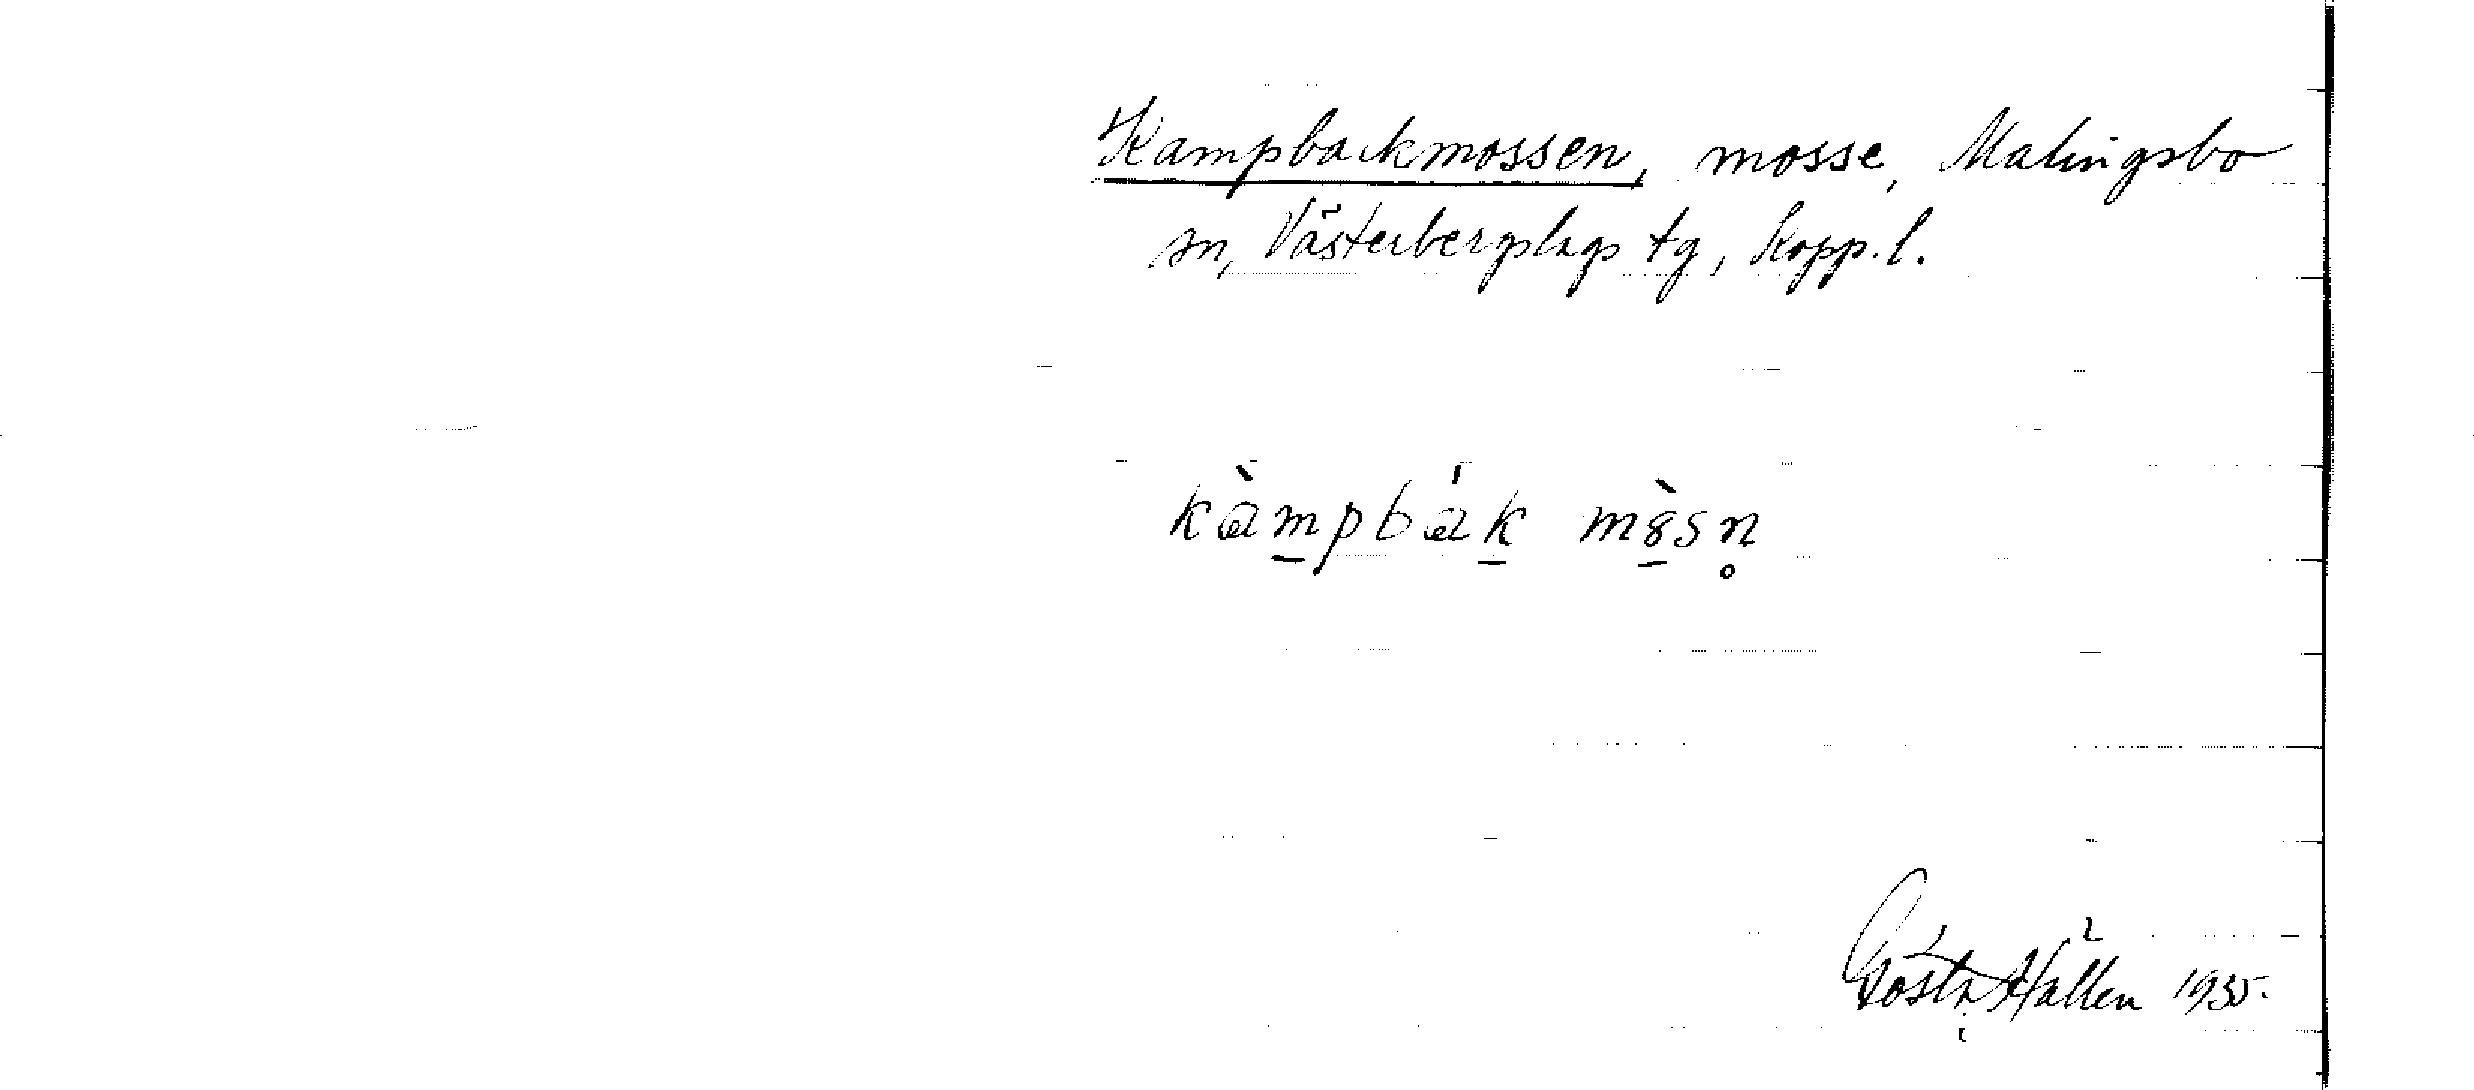 Kampbackmossen, mosse, Malingsbo
sn, Västerbergslags tg, Kopp. l.
kàm̲pbák̲ mò̲sn̥
Gösta Hallén 1935.